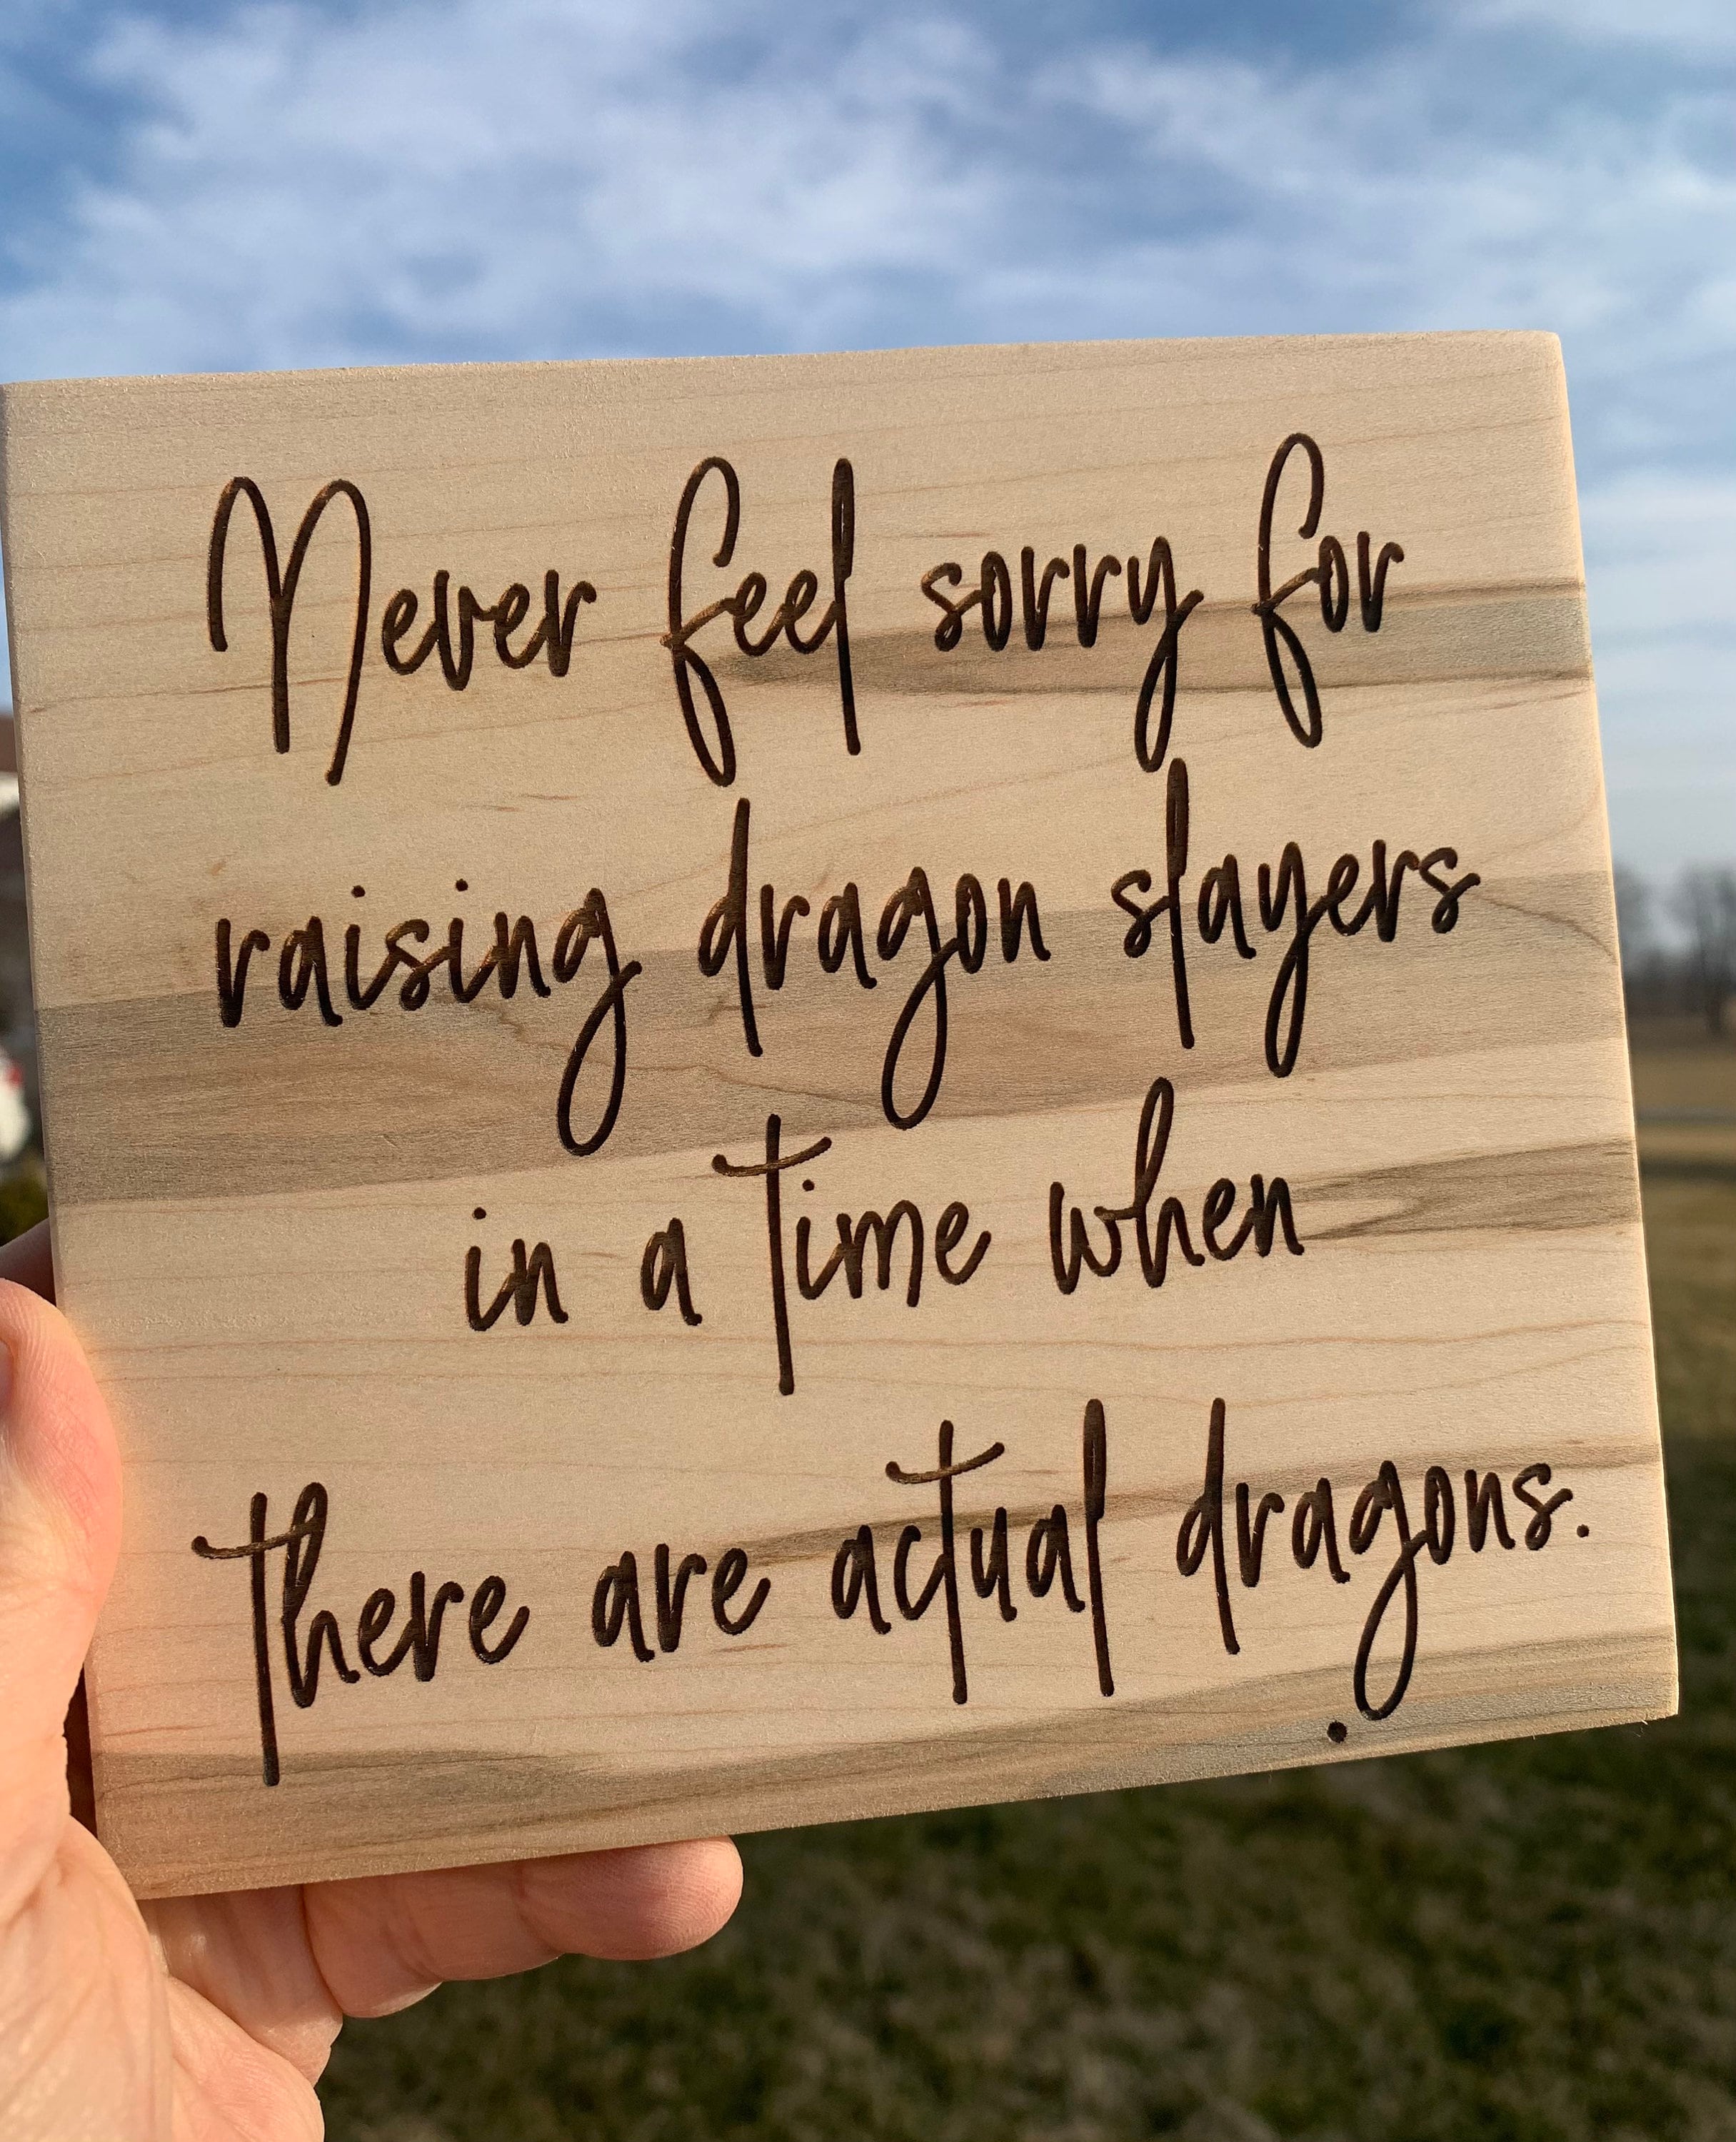 Never feel sorry for
raising dragon slayers
in a time when
there are actual dragons.